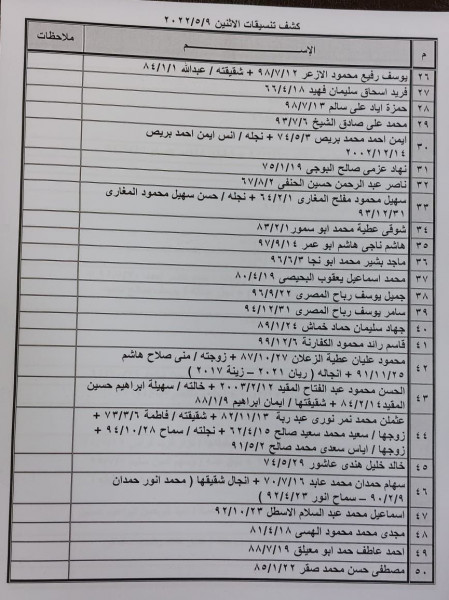 كشف تنسيقات الاثنين ٢٠٢٢/٥/٩
م الإســـــم ملاحظات
٢٦ يوسف رفيع محمود الازعر ٩٨/٧/١٢ + شقيقته / عبدالله ٨٤/١/١
٢٧ فريد اسحاق سليمان فهيد ٦٦/٤/١٨
٢٨ حمزة اياد على سالم ٩٨/٧/١٣
٢٩ محمد على صادق الشيخ ٩٣/٧/٦
٣٠ ايمن احمد محمد بريص ٧٤/٥/٣ + نجله / انس ايمن احمد بريص
٢٠٠٢/١٢/١٤
٣١ نهاد عزمى صالح البوجى ٧٥/١/١٩
٣٢ ناصر عبد الرحمن حسين الحنفى ٦٧/٨/٢
٣٣ سهيل محمود مفلح المغارى ٦٤/٢/١ + نجله / حسن سهيل محمود المغارى
٩٣/١٢/٣١
٣٤ شوقى عطية محمد ابو سمور ٨٣/٢/١
٣٥ هاشم ناجى هاشم ابو عمر ٩٧/٩/١٤
٣٦ ماجد بشير محمد ابو نجا ٩٦/٦/٣
٣٧ محمد اسماعيل يعقوب البحيصى ٨٠/٤/١٩
٣٨ جميل يوسف رباح المصرى ٩٦/٩/٢٢
٣٩ سامر يوسف رباح المصرى ٩٤/١٢/٣١
٤٠ جهاد سليمان حماد خماش ٨٩/١/٢٤
٤١ قاسم رائد محمود الكفارنة ٩٩/١٢/٦
٤٢ محمود عليان عطية الزعلان ٨٧/١٠/٢٧ + زوجته / منى صلاح هاشم
٩١/١١/٢٥ + انجاله ( ريان ٢٠٢١ – زينة ٢٠١٧ )
٤٣ الحسن محمود عبد الفتاح المقيد ٢٠٠٣/٢/١٢ + خالته / سهيلة ابراهيم حسين
المقيد ٨٤/٢/١٤ + شقيقتها / ايمان ابراهيم ٨٨/١/٩
٤٤ عثمان محمد نمر نورى عبد ربة ٨٢/١١/١٣ + شقيقته / فاطمة ٧٣/٣/٦ +
زوجها / سعيد محمد سعيد صالح ٦٢/٤/١٥ + نجلته / سماح ٩٤/١٠/٢٨ +
زوجها / اياس سعدى محمد صالح ٩١/٥/٢
٤٥ خالد خليل هندى عاشور ٧٤/٥/٢٩
٤٦ سهام حمدان محمد عابد ٧٠/٧/١٦ + انجال شقيقها ( محمد انور حمدان
٩٠/٢/٩ – سماح انور ٩٢/٤/٢٣ )
٤٧ اسماعيل محمد عبد السلام الاسطل ٩٢/١٠/٢٣
٤٨ مجدى محمد محمود الهسى ٨١/٤/١٨
٤٩ احمد عاطف حمد ابو معيلق ٨٨/٧/١٩
٥٠ مصطفى حسن محمد صقر ٨٥/١/٢٢